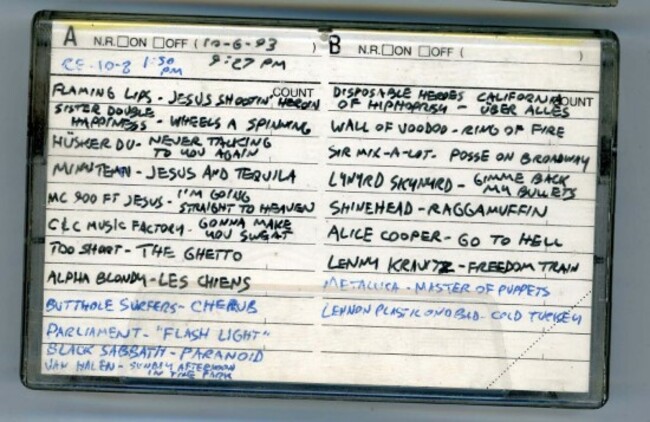 A N.R. ON OFF (10-6-93)
RE-10-8 1:30 PM 9:27 PM
COUNT
FLAMING LIPS - JESUS SHOOTIN' HEROIN
SISTER DOUBLE
HAPPINESS - WHEELS A SPINNING
HÜSKER DU - NEVER TALKING
TO YOU AGAIN
MINUTEMAN - JESUS AND TEQUILA
MC 900 FT JESUS - I'M GOING
STRAIGHT TO HEAVEN
C&C MUSIC FACTORY - GONNA MAKE
YOU SWEAT
TOO SHORT - THE GHETTO
ALPHA BLONDY - LES CHIENS
BUTTHOLE SURFERS - CHERUB
PARLIAMENT - "FLASH LIGHT"
BLACK SABBATH - PARANOID
VAN HALEN - SUNDAY AFTERNOON
IN THE PARK
B N.R. ON OFF ( )
COUNT
DISPOSABLE HEROES CALIFORNIA
OF HIPHOPRISY - ÜBER ALLES
WALL OF VOODOO - RING OF FIRE
SIR MIX-A-LOT - POSSE ON BROADWAY
LYNYRD SKYNYRD - GIMME BACK
MY BULLETS
SHINEHEAD - RAGGAMUFFIN
ALICE COOPER - GO TO HELL
LENNY KRAVITZ - FREEDOM TRAIN
METALLICA - MASTER OF PUPPETS
LENNON PLASTIC ONO BAND - COLD TURKEY